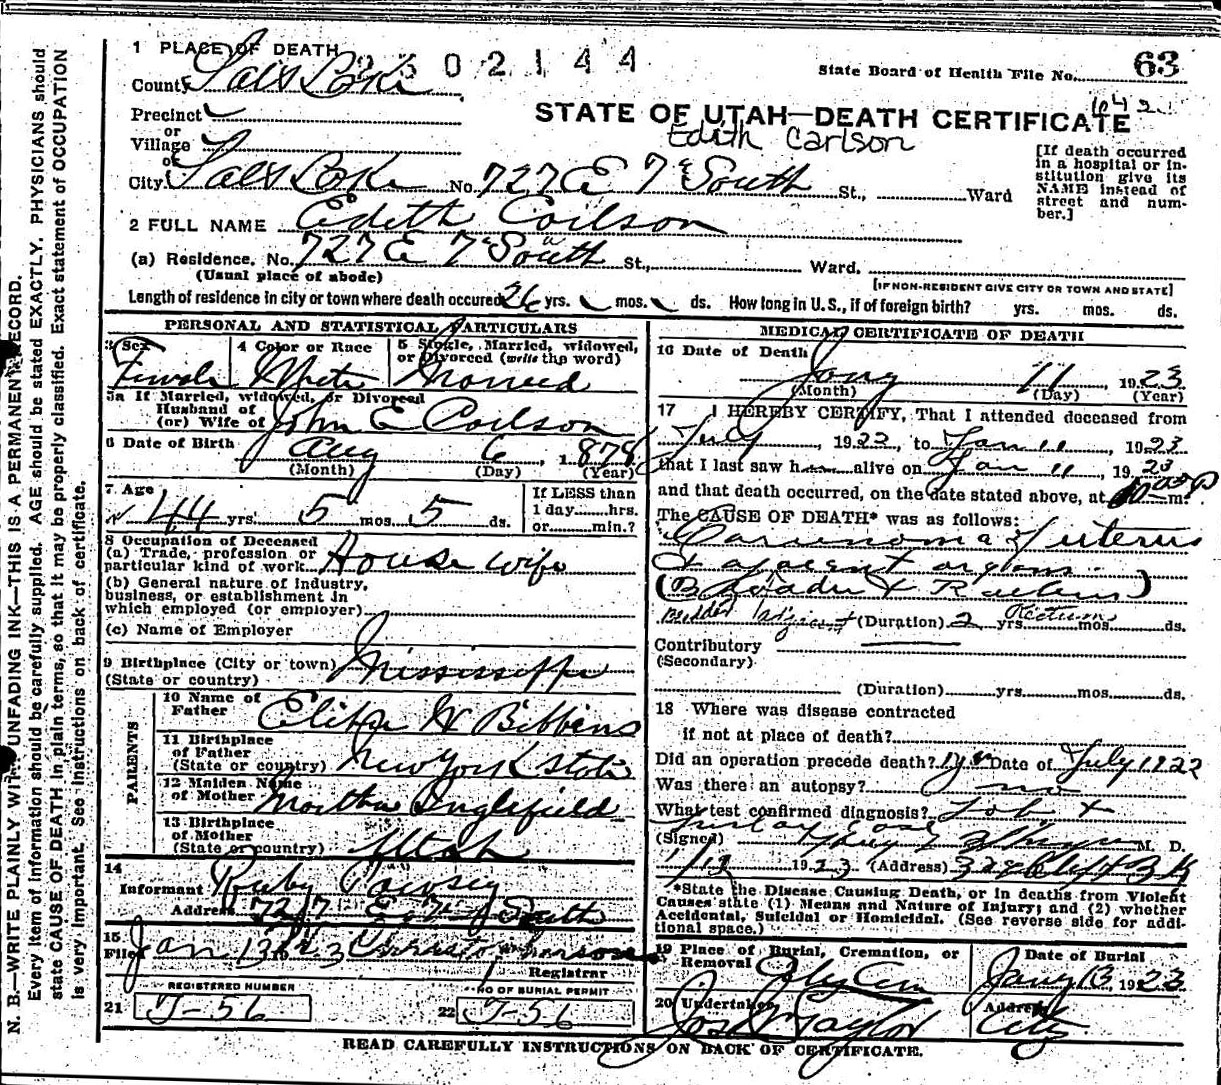 1 PLACE OF DEATH 2 3 0 2 1 4 4
State Board of Health File No. 63
County Salt Lake
STATE OF UTAH—DEATH CERTIFICATE
Precinct
or
Village
Edith Carlson
[If death occurred
in a hospital or in-
stitution give its
NAME instead of
street and num-
ber.]
or
City Salt Lake No. 727 E 7 South St., Ward
2 FULL NAME Edith Carlson
(a) Residence. No. 727 E 7 South St., Ward.
(Usual place of abode) [IF NON-RESIDENT GIVE CITY OR TOWN AND STATE]
Length of residence in city or town where death occured 26 yrs. mos. ds. How long in U.S., if of foreign birth? yrs. mos. ds.
PERSONAL AND STATISTICAL PARTICULARS
3 Sex 4 Color or Race 5 Single, Married, widowed,
or Divorced (write the word)
Female White Married
5a If Married, widowed, or Divorced
Husband of
(or) Wife of John E Carlson
6 Date of Birth Aug 6, 1878
(Month) (Day) (Year)
7 Age
44 yrs. 5 mos. 5 ds.
If LESS than
1 day......hrs.
or.......min.?
8 Occupation of Deceased
(a) Trade, profession or
particular kind of work House wife
(b) General nature of industry,
business, or establishment in
which employed (or employer)
(c) Name of Employer
9 Birthplace (City or town) Mississippi
(State or country)
PARENTS
10 Name of
Father W Bibbins
11 Birthplace
of Father
(State or country) New York state
12 Maiden Name
of Mother Martha Inglefield
13 Birthplace
of Mother
(State or country) Utah
14
Informant Ruby
Address 727 E 7 South
15
Filed Jan 13 1923
Registrar
REGISTERED NUMBER NO OF BURIAL PERMIT
21 J-56 22 J-56
MEDICAL CERTIFICATE OF DEATH
16 Date of Death
Jany 11, 1923
(Month) (Day) (Year)
17 I HEREBY CERTIFY, That I attended deceased from
July, 1922, to Jan 11, 1923
that I last saw h alive on Jan 11, 1923
and that death occurred, on the date stated above, at m.
The CAUSE OF DEATH* was as follows:
Carcinoma of uterus
& adjacent organs.
(Bladder & Rectum)
Bladder adjacent Rectum
(Duration) 2 yrs. mos. ds.
Contributory
(Secondary)
(Duration) yrs. mos. ds.
18 Where was disease contracted
if not at place of death?
Did an operation precede death? yes Date of July 1922
Was there an autopsy? no
What test confirmed diagnosis? Lab +
(Signed) M. D.
1/12 1923 (Address)
*State the Disease Causing Death, or in deaths from Violent
Causes state (1) Means and Nature of Injury; and (2) whether
Accidental, Suicidal or Homicidal. (See reverse side for addi-
tional space.)
19 Place of Burial, Cremation, or
Removal City Cem
Date of Burial
Jany 13, 1923
20 Undertaker
Jos Wm Taylor
Address
City
READ CAREFULLY INSTRUCTIONS ON BACK OF CERTIFICATE.
N. B.—WRITE PLAINLY WITH UNFADING INK—THIS IS A PERMANENT RECORD.
Every item of information should be carefully supplied. AGE should be stated EXACTLY. PHYSICIANS should
state CAUSE OF DEATH in plain terms, so that it may be properly classified. Exact statement of OCCUPATION
is very important. See instructions on back of certificate.